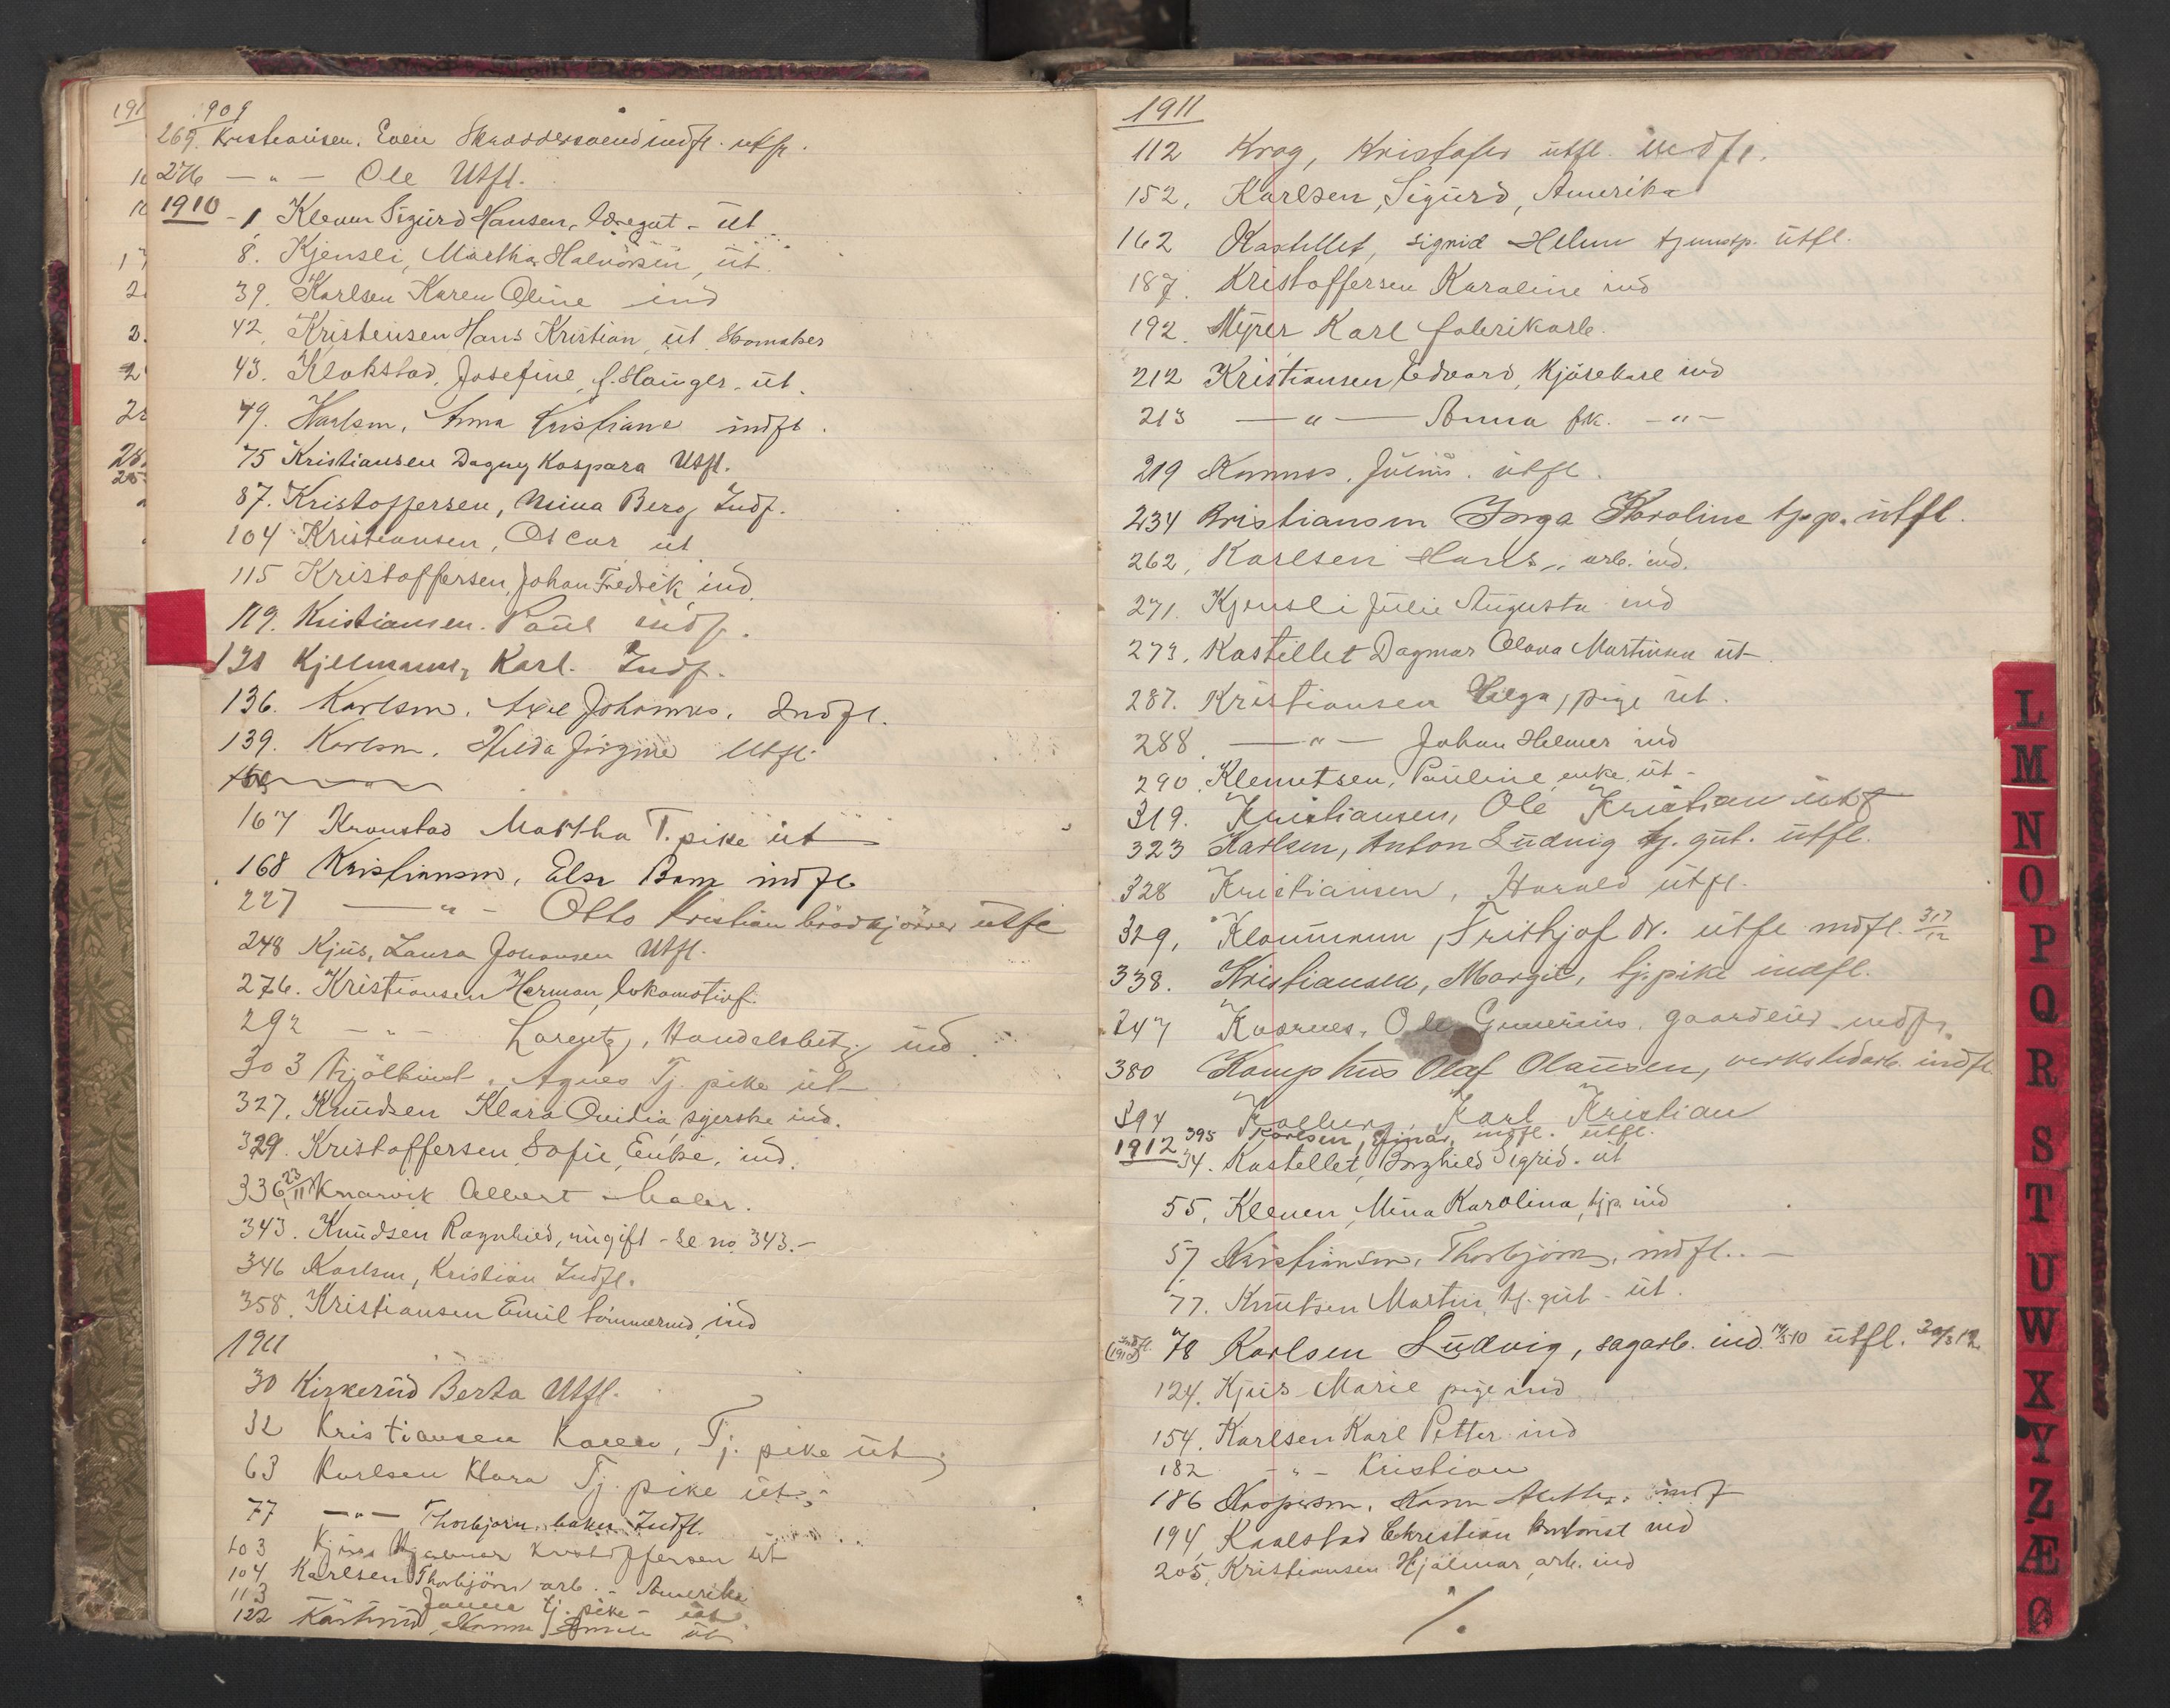 1909
269. Kristiansen, Even Skræddersvend indfl. utfl.
276 — " — Ole Utfl.
1910 - 1 Kleven Sigurd Hansen, læregut - ut
8. Kjensli, Martha Halvorsen, ut.
39. Karlsen Karen Oline ind
42. Kristensen Hans Kristian, ut Skomaker
43. Klokstad, Josefine, f. Hauger, ut.
49. Karlsen, Anna Kristiane indfl.
75 Kristiansen Dagny Kaspara Utfl.
87. Kristoffersen, Mina Berg, Indf.
104 Kristiansen, Oscar ut
115 Kristoffersen, Johan Fredrik ind.
119. Kristiansen. Paul indf.
131 Kjellmann, Karl. Indf.
136. Karlsen, Axel Johannes, Indfl.
139. Karlsen, Hilda Jörgine Utfl.
167 Kronstad Martha T. pike ut
168 Kristiansen, Else Barn indfl
227 — " — Otto Kristian brödkjörer utfl
248 Kjus, Laura Johansen Utfl.
276. Kristiansen Herman, lokomotivf.
292 — " — Lorentz, Handelsbetj. ind.
303 Agnes Tj. pike ut
327. Knudsen Klara Ovidia syerske ind.
329. Kristoffersen Sofie, Enke, ind.
336, 23/11 Knarvik Albert - baker.
343. Knudsen Ragnhild, ugift - se no. 343. -
346 Karlsen, Kristian Indfl.
358. Kristiansen Emil tömmermd, ind
1911
30 Kirkerud Berta Utfl.
32 Kristiansen Karen, Tj. pike ut
63 Karlsen Klara Tj. pike ut.
77 — " — Thorbjørn, baker Indfl.
103 Kjus Hjalmar Kristoffersen ut
104 Karlsen Thorbjörn arb. - Amerika
113 Janna tj. pike - ut
122 Hanna ut
1911
112 Krog, Kristofer utfl. indfl.
152, Karlsen, Sigurd, Amerika
162 Kastellet, Signid Helene tjenestp. utfl.
187. Kristoffersen Karoline ind
192. Myrer Karl fabrikarb.
212 Kristiansen, Edvard, Kjörekarl ind
213 — " — Anna frk. — " —
219 Kamnes, Julius. utfl.
234 Kristiansen Inga Karoline tj.p. utfl.
262, Karlsen Hans, arb. ind.
271. Kjensli Julie Augusta ind
273, Kastellet Dagmar Olava Martinsen ut
287. Kristiansen Helga, pige ut.
288. — " — Johan Helmer ind
290. Klemetsen, Pauline, enke, ut -
319. Kristiansen, Ole Kristian utf
323 Karlsen, Anton Ludvig tj. gut. utfl.
328 Kristiansen, Harald utfl.
329, Klaumann, Frithjof dr. utfl indfl. 31/12
338. Kristiansen, Margit, tj.pike indfl.
347 Kaarnes, Ole Gunerius, gaardeier indfl.
380 Kamphus Olaf Olausen, verkstedarb. indfl.
394 Kolberg, Karl Kristian
395 Karlsen, Ejnar, indfl. utfl.
1912
34. Kastellet, Borghild Sigrid. ut
55, Kleven, Mina Karolina, tjp. ind
57 Kristiansen, Thorbjörn, indfl. -
77. Knutsen Martin, tj. gut - ut.
(Indfl. 1912) 78 Karlsen Ludvig, sagarb. ind. 14/5 10 utfl. 30/3 12
124. Kjus Marie pige ind
154. Karlsen Karl Petter ind
182 — " — Kristian
186 Kaspersen, Karen indf
194, Kaalstad Christian kontorist ind
205, Kristiansen Hjalmar, arb. ind
L
M
N
O
P
Q
R
S
T
U
W
X
Y
Z
Æ
Ø